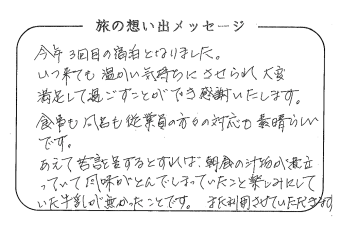 旅の想い出メッセージ
今年3回目の宿泊となりました。
いつ来ても温かい気持ちにさせられ、大変
満足して過ごすことができ感謝いたします。
食事も風呂も従業員の方々の対応も素晴らしい
です。
あえて苦言を呈するとすれば、朝食の汁物が煮立
っていて風味がとんでしまっていたこと楽しみにして
いた牛乳が無かったことです。また利用させていただきます